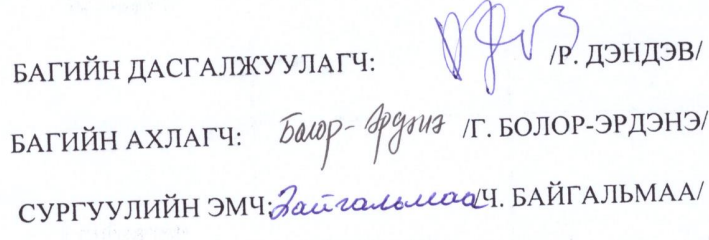 БАГИЙН ДАСГАЛЖУУЛАГЧ: /Р. ДЭНДЭВ/
БАГИЙН АХЛАГЧ: Болор-Эрдэнэ /Г. БОЛОР-ЭРДЭНЭ/
СУРГУУЛИЙН ЭМЧ: Байгальмаа /Ч. БАЙГАЛЬМАА/